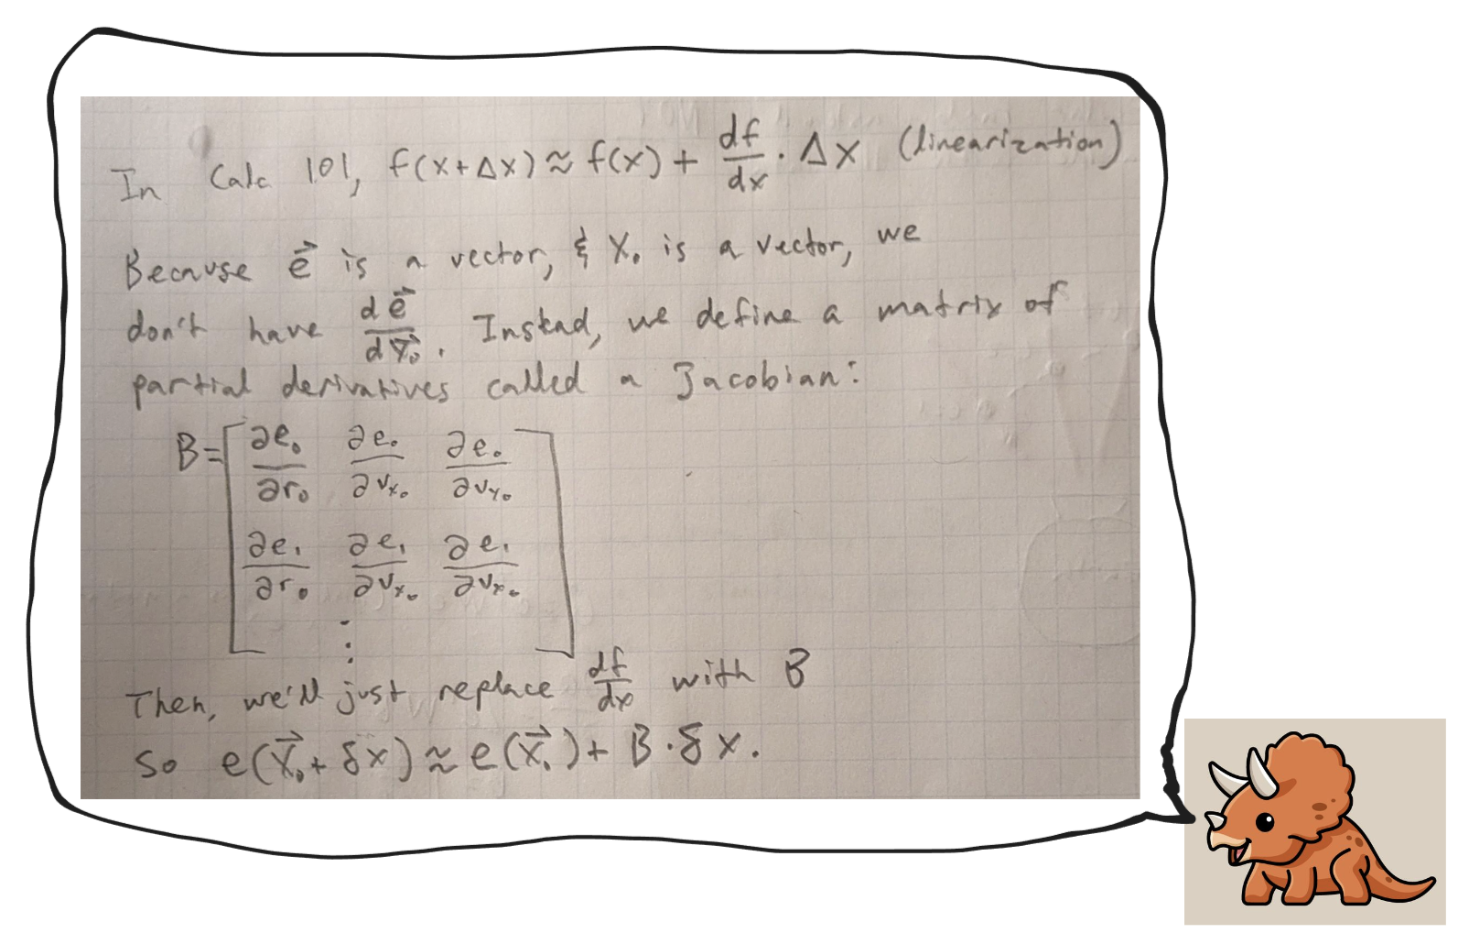 In Calc 101, f(x+Δx) ≈ f(x) + df/dx · Δx (linearization)
Because e⃗ is a vector, & X₀ is a vector, we
don't have de⃗/dx⃗₀. Instead, we define a matrix of
partial derivatives called a Jacobian:
B = [ ∂e₀/∂r₀ ∂e₀/∂v_x₀ ∂e₀/∂v_y₀
∂e₁/∂r₀ ∂e₁/∂v_x₀ ∂e₁/∂v_x₀
⋮ ]
Then, we'll just replace df/dx with B
So e(x⃗₀ + δx) ≈ e(x⃗₀) + B · δx.